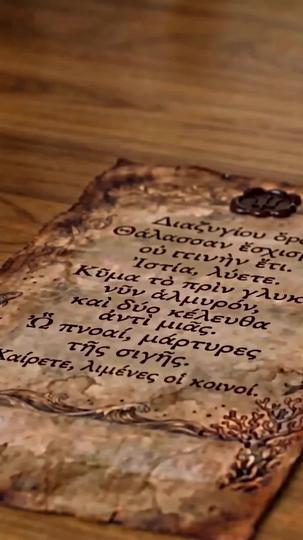 Διαζυγίου
Θάλασσαν
οὐ πτινὴν ἔτι.
Ἱστία, λύετε.
Κῦμα τὸ πρὶν
νῦν ἁλμυρόν,
καὶ δύο κέλευθα
ἀντὶ μιᾶς.
Ὦ πνοαί, μάρτυρες
τῆς σιγῆς.
Χαίρετε, λιμένες οἱ κοινοί.